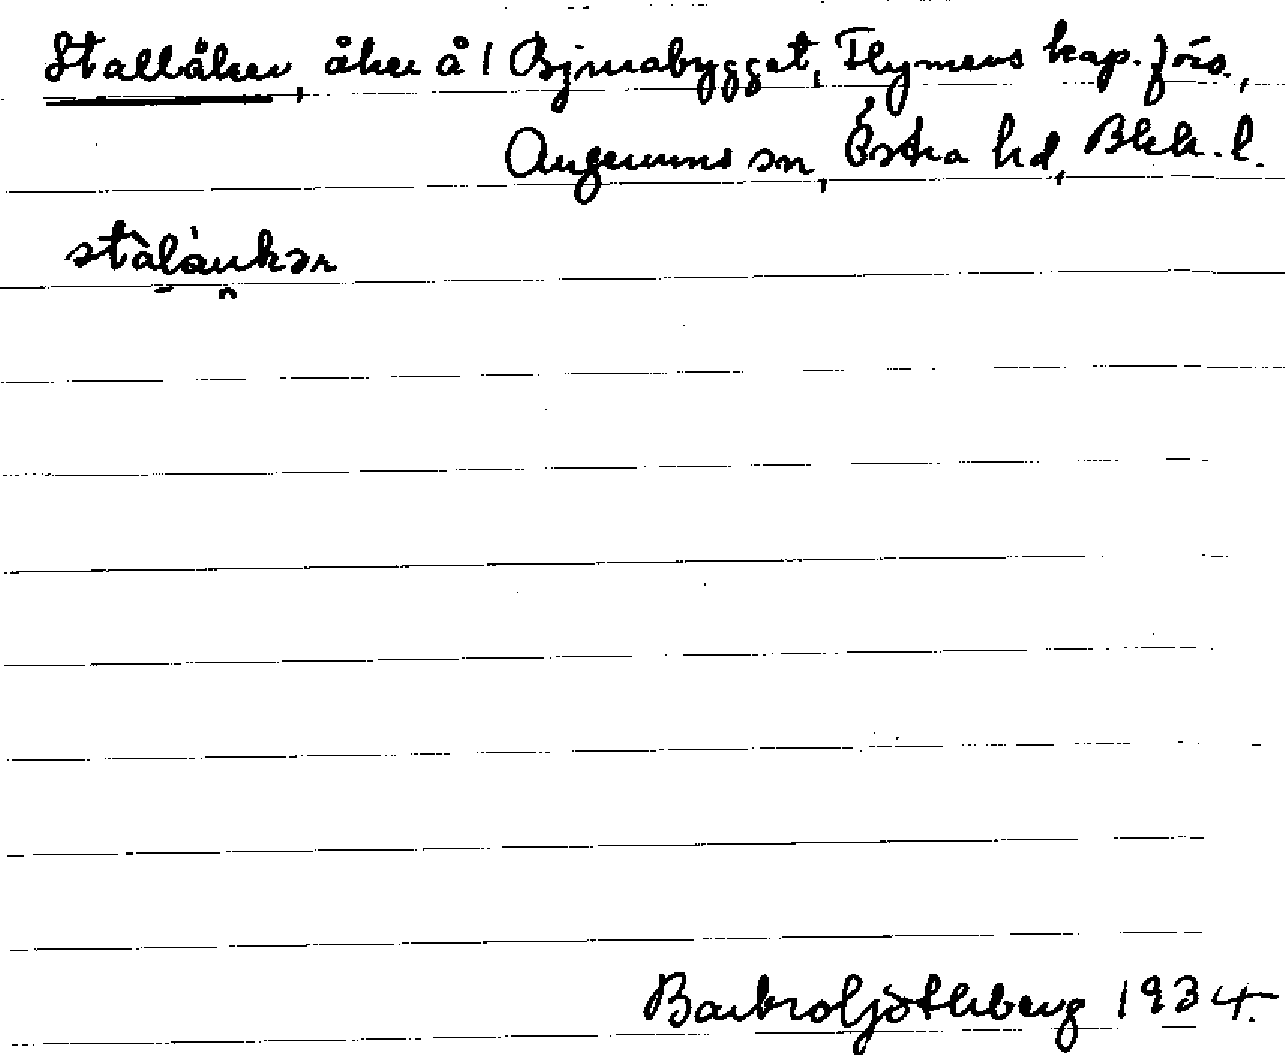 Stallåker, åker å 1 Bjurabygget, Flymens kap. förs.,
Augerums sn, Östra hd, Blek. l.
Barbro Ljöthberg 1934.